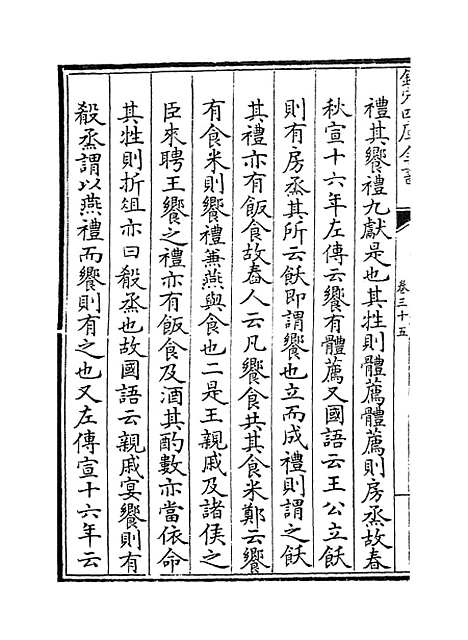 欽定四庫全書
卷三十五
禮其饗禮九獻是也其牲則體薦體薦則房烝故春
秋宣十六年左傳云饗有體薦又國語云王公立飫
則有房烝其所云飫即謂饗也立而成禮則謂之飫
其禮亦有飯食故舂人云凡饗食共其食米鄭云饗
有食米則饗禮兼燕與食也二是王親戚及諸侯之
臣來聘王饗之禮亦有飯食及酒其酌數亦當依命
其牲則折俎亦曰殽烝也故國語云親戚宴饗則有
殽烝謂以燕禮而饗則有之也又左傳宣十六年云